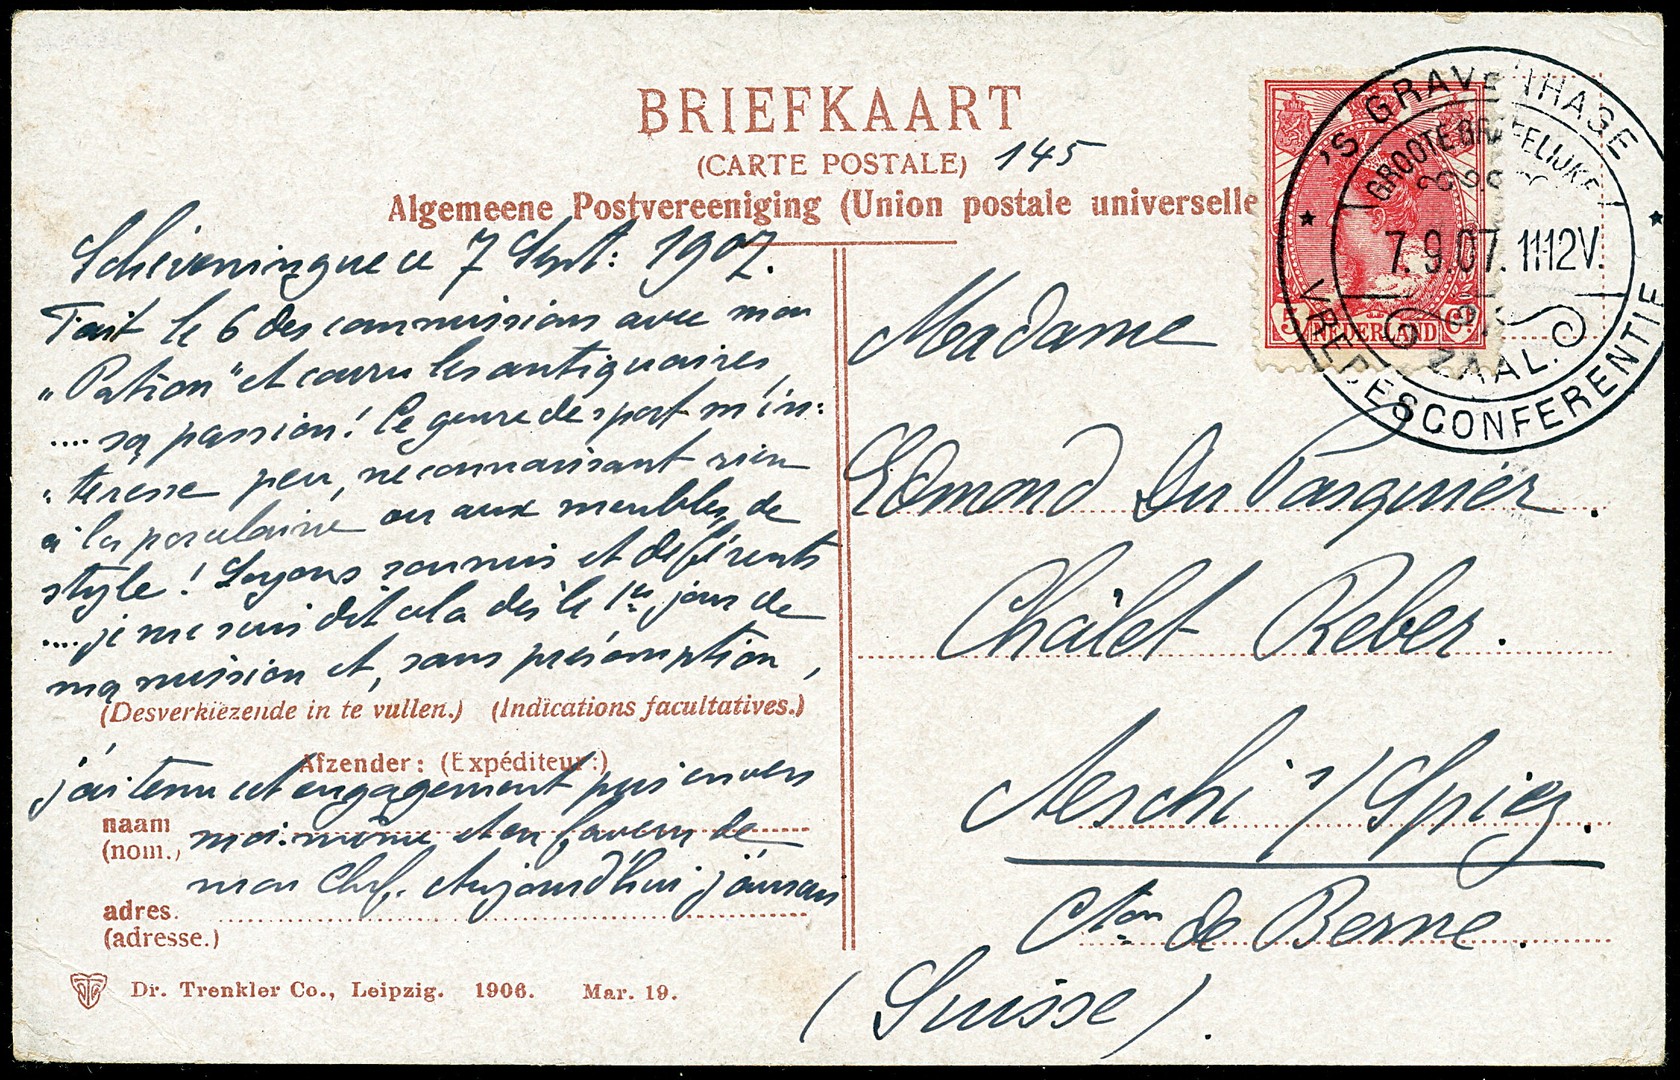 BRIEFKAART
(CARTE POSTALE) 145
Algemeene Postvereeniging (Union postale universelle
Scheveningue ce 7 Sept: 1907.
Fait le 6 des commissions avec mon
„Patron" et couru les antiquaires,
.... sa passion! Ce genre de sport m'in:
: teresse peu, ne connaissant rien
à la porcelaine ou aux meubles de
style! Soyons soumis et déférents
.... je me suis dit cela dès le 1er jour de
ma mission et, sans présomption,
(Desverkiezende in te vullen.) (Indications facultatives.)
Afzender: (Expéditeur:)
j'ai tenu cet engagement pris envers
naam
(nom.) moi-même et en faveur de
mon Chef. Aujourd'hui j'aurai
adres.
(adresse.)
Dr. Trenkler Co., Leipzig. 1906. Mar. 19.
Madame
Edmond Du Pasquier.
Châlet Reber.
Aeschi s/ Spiez.
Cton de Berne.
(Suisse).
5 NEDERLAND Ct
'S GRAVENHAGE
GROOTE BRIEFELIJKE
7.9.07. 11-12V.
ZAAL.
VREDESCONFERENTIE